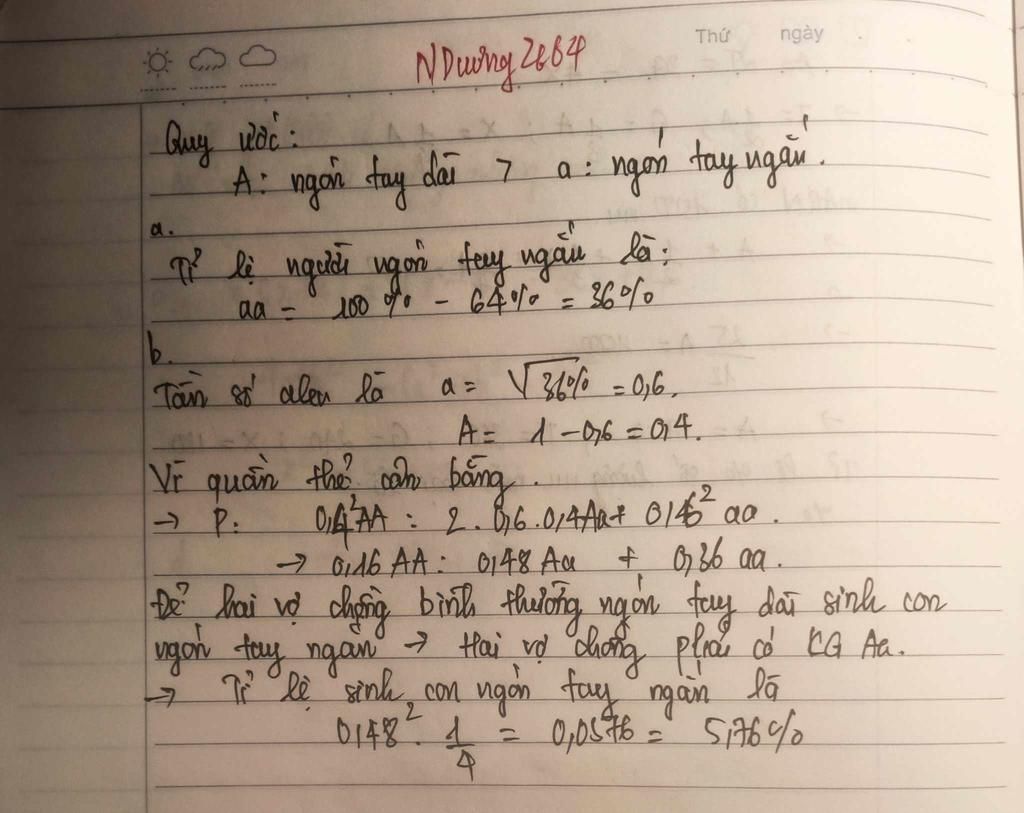 Thứ ngày
NDương2684
Quy ước:
A: ngón tay dài > a: ngón tay ngắn.
a.
Tỉ lệ người ngón tay ngắn là:
aa = 100% - 64% = 36%
b.
Tần số alen là a = √36% = 0,6.
A = 1 - 0,6 = 0,4.
Vì quần thể cân bằng.
→ P: 0,4² AA : 2. 0,6. 0,4Aa + 0,6² aa.
→ 0,16 AA : 0,48 Aa + 0,36 aa.
Để hai vợ chồng bình thường ngón tay dài sinh con
ngón tay ngắn → Hai vợ chồng phải có KG Aa.
→ Tỉ lệ sinh con ngón tay ngắn là
0,48² . 1/4 = 0,0576 = 5,76%